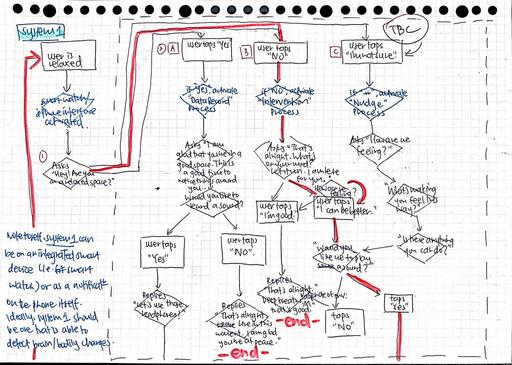 System 1
user is
relaxed
smartwatch/
phone interface
activated
①
Asks
"Hey! Are you
in a relaxed space?"
② A
user taps "Yes"
B
user taps
"NO"
C
user taps
"I'm not sure"
TBC
if "Yes", activate
"Data Record"
Process
if "No", activate
"Intervention"
Process
activate
"Nudge"
Process
Asks "I am
glad that you're in a
good space. This is
a good time to
around
you...
would you like to
record a sound?
Asks "That's
alright. What's
on your mind?
for you.
Asks
feeling?"
user taps
"I'm good"
user taps
"I can be better"
"What's making
you feel this
way?"
"Is there anything
you can do?"
"Would you
like me to play
some sound?
user taps
"Yes"
user taps
"NO".
Replies
"Let's use those
headphones!"
Replies
"That's alright
in this
moment. I am glad
you're at peace.
-end-
Replies
"That's alright.
Deep breaths
that's good.
-end-
taps
"NO"
taps
"Yes"
Note to self, system 1 can
be on an integrated smart
device (i.e. fit smart
watch) or as a notificatn
on the phone itself.
Ideally, system 1 should
be one that's able to
detect brain/bodily changes.